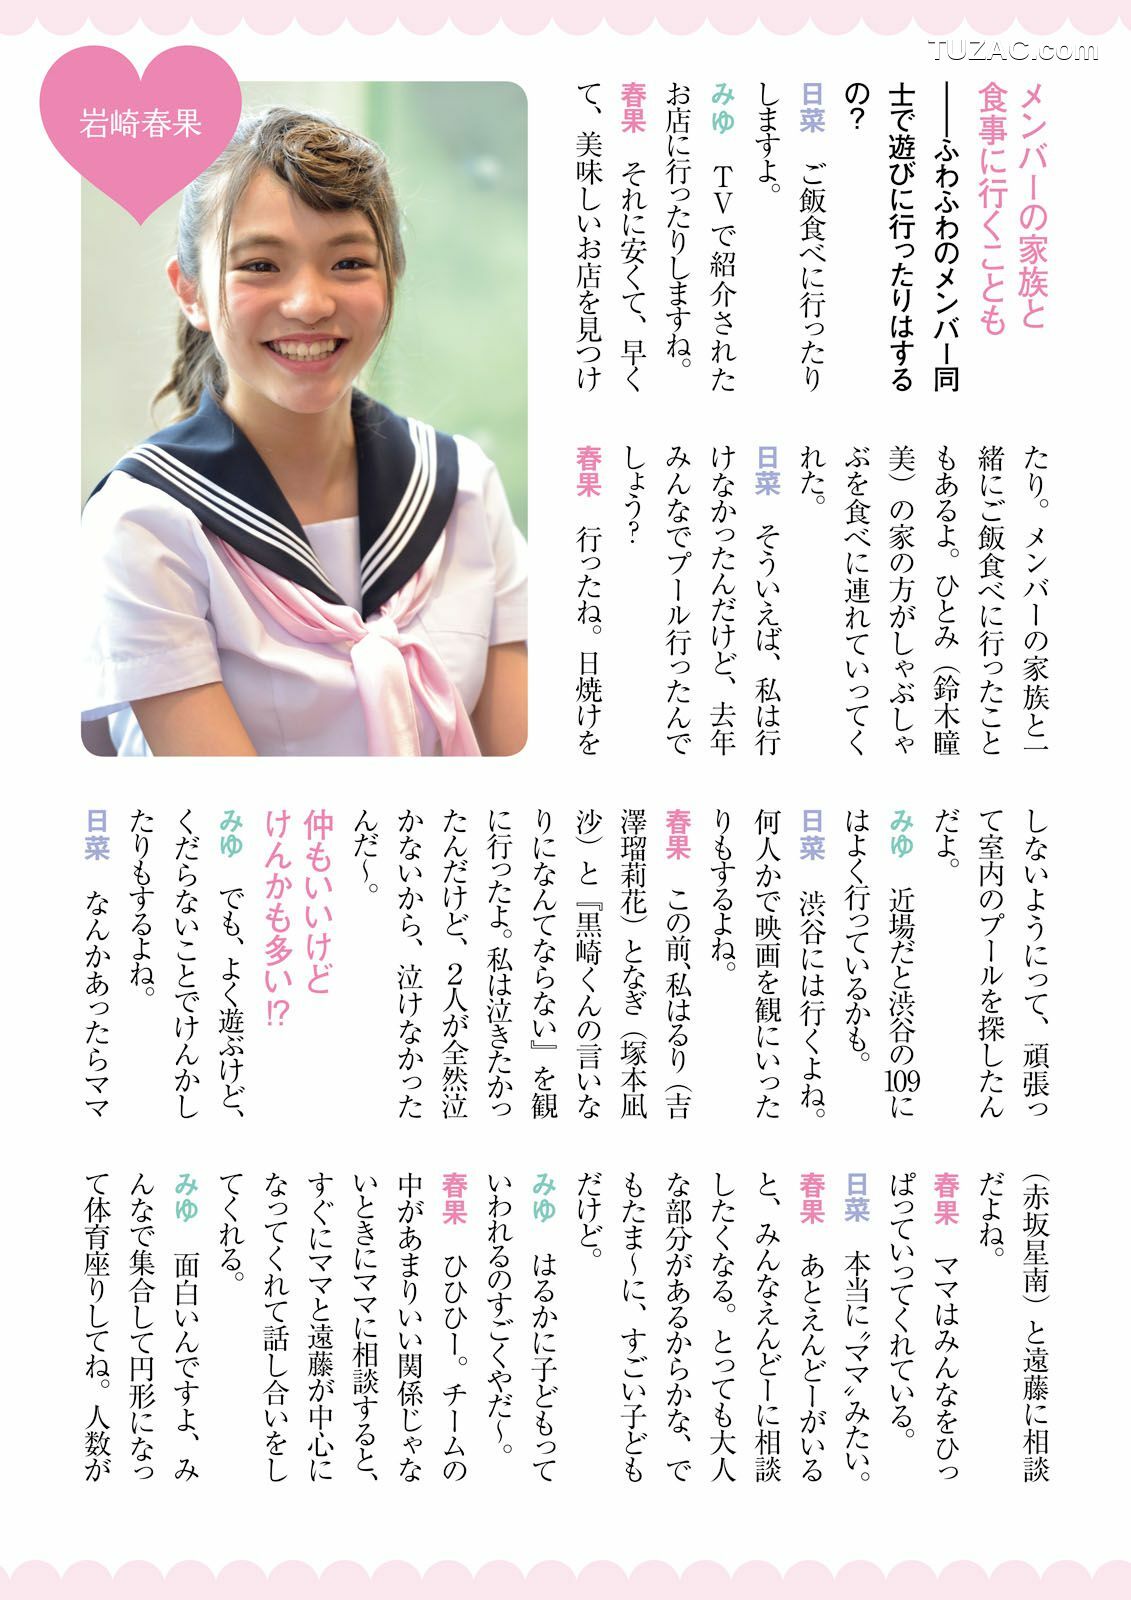 TUZAC.com
岩崎春果
メンバーの家族と
食事に行くことも
――ふわふわのメンバー同
士で遊びに行ったりはする
の？
日菜　ご飯食べに行ったり
しますよ。
みゆ　TVで紹介された
お店に行ったりしますね。
春果　それに安くて、早く
て、美味しいお店を見つけ
たり。メンバーの家族と一
緒にご飯食べに行ったこと
もあるよ。ひとみ（鈴木瞳
美）の家の方がしゃぶしゃ
ぶを食べに連れていってく
れた。
日菜　そういえば、私は行
けなかったんだけど、去年
みんなでプール行ったんで
しょう？
春果　行ったね。日焼けを
しないようにって、頑張っ
て室内のプールを探したん
だよ。
みゆ　近場だと渋谷の109に
はよく行っているかも。
日菜　渋谷には行くよね。
何人かで映画を観にいった
りもするよね。
春果　この前、私はるり（吉
澤瑠莉花）となぎ（塚本凪
沙）と『黒崎くんの言いな
りになんてならない』を観
に行ったよ。私は泣きたかっ
たんだけど、2人が全然泣
かないから、泣けなかった
んだ〜。
仲もいいけど
けんかも多い!?
みゆ　でも、よく遊ぶけど、
くだらないことでけんかし
たりもするよね。
日菜　なんかあったらママ
（赤坂星南）と遠藤に相談
だよね。
春果　ママはみんなをひっ
ぱっていってくれている。
日菜　本当に〝ママ〟みたい。
春果　あとえんどーがいる
と、みんなえんどーに相談
したくなる。とっても大人
な部分があるからかな、で
もたま〜に、すごい子ども
だけど。
みゆ　はるかに子どもって
いわれるのすごくやだ〜。
春果　ひひひー。チームの
中があまりいい関係じゃな
いときにママに相談すると、
すぐにママと遠藤が中心に
なってくれて話し合いをし
てくれる。
みゆ　面白いんですよ、み
んなで集合して円形になっ
て体育座りしてね。人数が